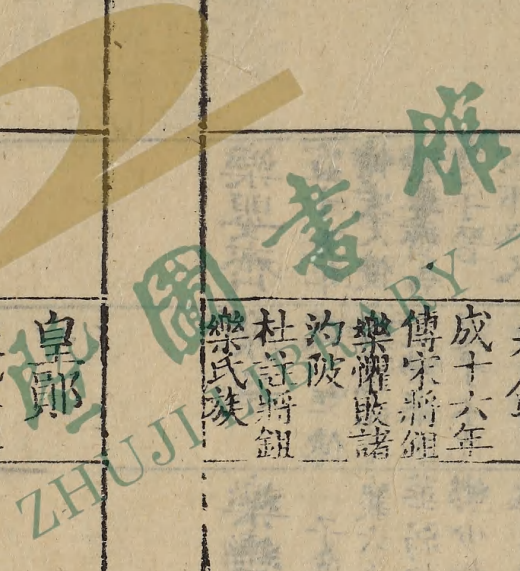 成十六年
傅宋將鉏
樂懼敗諸
汋陂
杜註將鉏
樂氏族
皇鄖
圖書館
ZHUJI LIBRARY